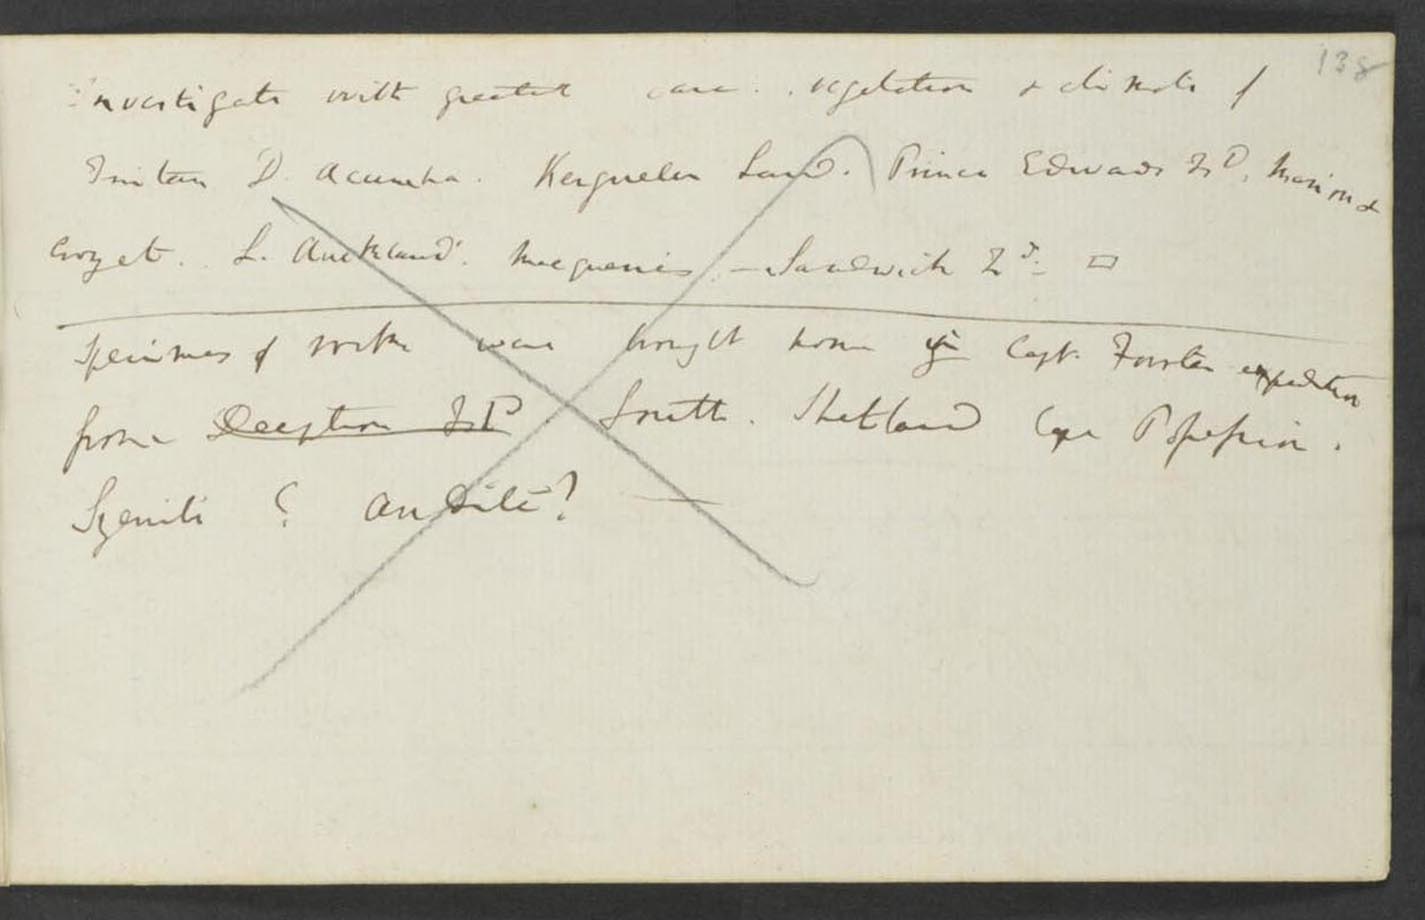 138
Investigate with greatest care. vegetation & climate of
Tristan D. Acunha. Kerguelen Land. Prince Edwards Isd, Marion &
Crozet. L. Auckland. Macquerie — Sandwich Isd. —
Specimens of rocks were brought home in Capt. Forster expedition
from Deception Isd South. Shetland Cape Possession.
Syenite? Andite? —